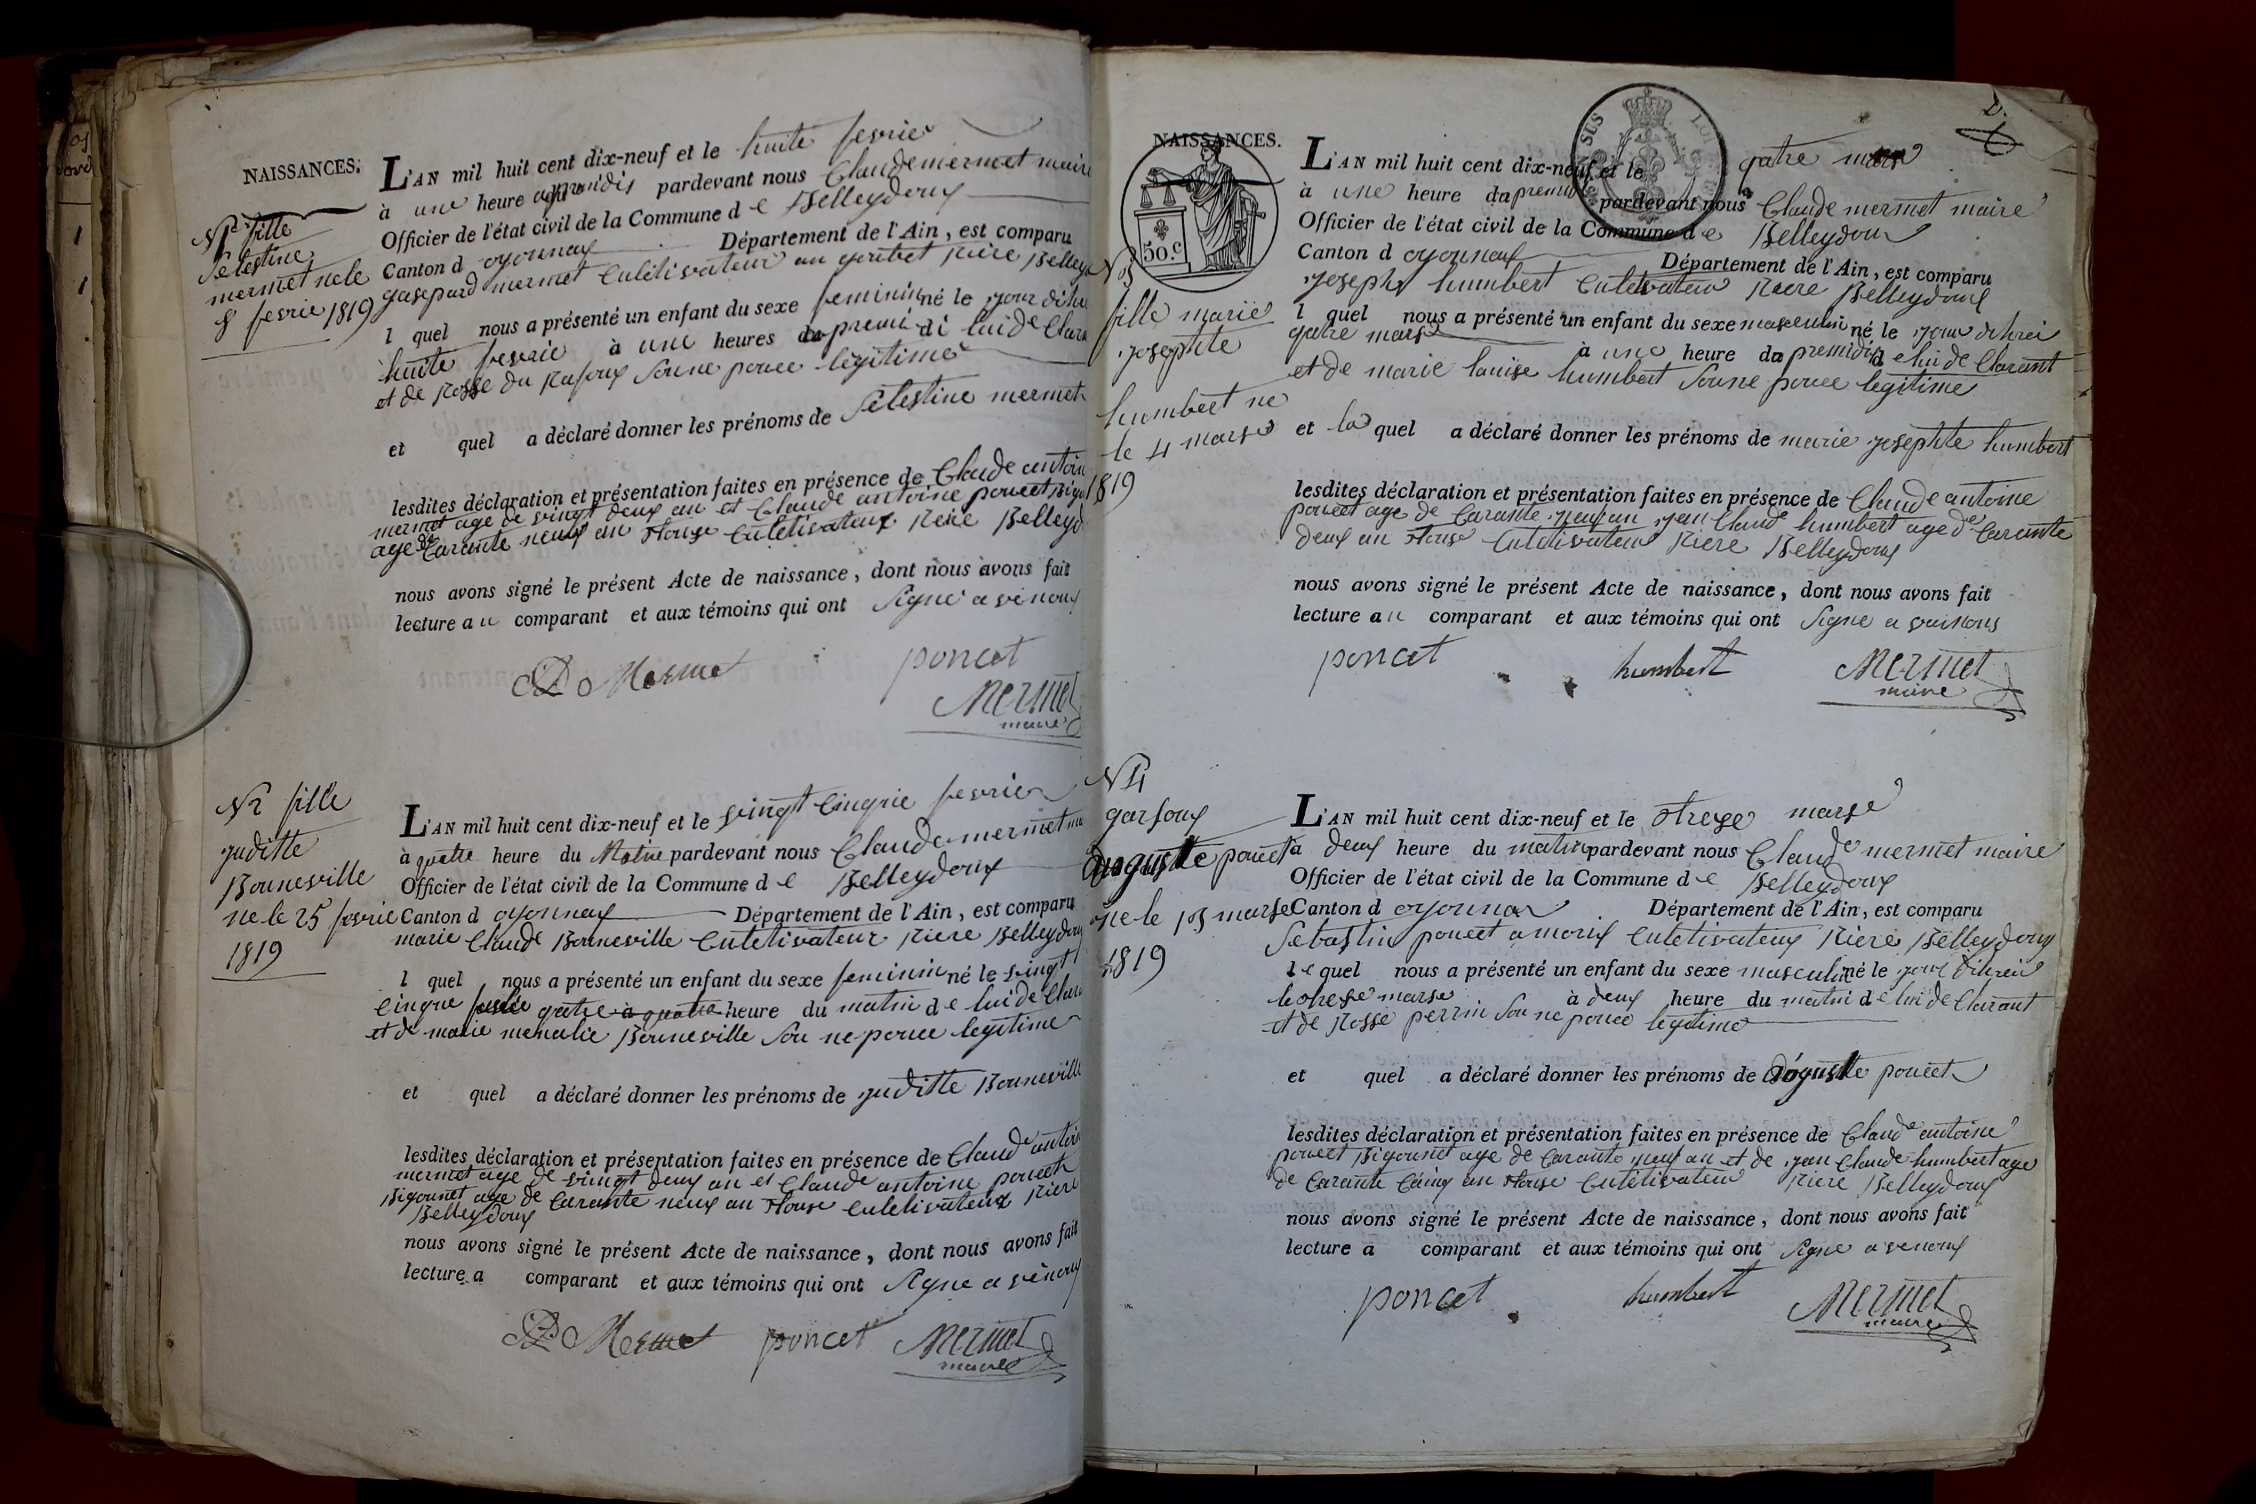 NAISSANCES.
L'AN mil huit cent dix-neuf et le huite fevrie
à une heure apremidis pardevant nous Claude mermet maire
Officier de l'état civil de la Commune d e Belleydoux
Canton d oyonnax Département de l'Ain, est comparu
gasepard mermet Culetivateur au gobet Riere Belleyd
l quel nous a présenté un enfant du sexe feminin né le jour dihie
huite fevrie à une heures du premidi de lui de Claran
et de Rosse du Rafour Sonne pouce legitime
et quel a déclaré donner les prénoms de Selestine mermet
lesdites déclaration et présentation faites en présence de Claude antoin
mermet age de vingt deux an et Claude antoine poncet Bigou
age de Carante neux an tous Culetivateux Riere Belleyd
nous avons signé le présent Acte de naissance, dont nous avons fait
lecture a u comparant et aux témoins qui ont Signé a venoux
poncet
Mermet
Mermet
maire
N1 fille
Selestine
mermet ne le
8 fevrie 1819
N2 fille
juditte
Bonneville
ne le 25 fevrie
1819
L'AN mil huit cent dix-neuf et le vingt Cinqie fevrier
à quatre heure du Matin pardevant nous Claude mermet ma
Officier de l'état civil de la Commune d e Belleydoux
Canton d oyonnax Département de l'Ain, est comparu
marie Claude Bonneville Culetivateur Riere Belleydoux
l quel nous a présenté un enfant du sexe feminin né le vingt
Cinque fevrie qatre à quatre heure du matin d e lui de Clara
et de marie menalie Bonneville Son ne pouce legitime
et quel a déclaré donner les prénoms de juditte Bonneville
lesdites déclaration et présentation faites en présence de Claude antoin
mermet age de vingt deux an et Claude antoine poncet
Bigounet age de Carante neux an touse Culetivateux Riere
Belleydoux
nous avons signé le présent Acte de naissance, dont nous avons fait
lecture a comparant et aux témoins qui ont Signe a venoux
Mermet poncet Mermet
maire
2
NAISSANCES.
50.c
N3
fille marie
josephte
humbert ne
le 4 marse
1819
L'AN mil huit cent dix-neuf et le qatre marse
à une heure da premidi pardevant nous Claude mermet maire
Officier de l'état civil de la Commune d e Belleydoux
Canton d oyonnax Département de l'Ain, est comparu
joseph humbert Culetivateur Riere Belleydoux
l quel nous a présenté un enfant du sexe masculin né le jour dihrei
qatre marse à une heure da premidi d e lui de Clarant
et de marie louise humbert Sonne pouce legitime
et la quel a déclaré donner les prénoms de marie josephte humbert
lesdites déclaration et présentation faites en présence de Claude antoine
poncet age de Carante neuf an jean Claude humbert age de Carante
deux an touse Culetivateur Riere Belleydoux
nous avons signé le présent Acte de naissance, dont nous avons fait
lecture a u comparant et aux témoins qui ont Signe a vainous
poncet humbert Mermet
maire
N4
garsoux
auguste poncet
ne le 13 marse
1819
L'AN mil huit cent dix-neuf et le treze marse
à deux heure du matin pardevant nous Claude mermet maire
Officier de l'état civil de la Commune d e Belleydoux
Canton d oyonnax Département de l'Ain, est comparu
Sebastin poncet a Culetivateux Riere Belleydoux
l e quel nous a présenté un enfant du sexe masculin né le jour dihrei
le treze marse à deux heure du matin d e lui de Clarant
et de Rosse perrin Son ne pouce legitime
et quel a déclaré donner les prénoms de auguste poncet
lesdites déclaration et présentation faites en présence de Claude antoine
poncet Bigounet age de Carante neuf an et de jean Claude humbert age
de Carante Cainq an touse Culetivateur Riere Belleydoux
nous avons signé le présent Acte de naissance, dont nous avons fait
lecture a comparant et aux témoins qui ont Signe a venoux
poncet humbert Mermet
maire